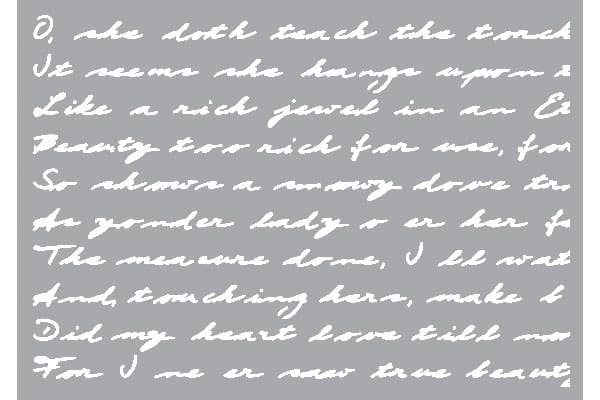 O, she doth teach the torch
It seems she hangs upon
Like a rich jewel in an
Beauty too rich for use, for
So shows a snowy dove tr
As yonder lady o er her f
The measure done, I ll wat
And, touching hers, make b
Did my heart love till no
For I ne er saw true beauty